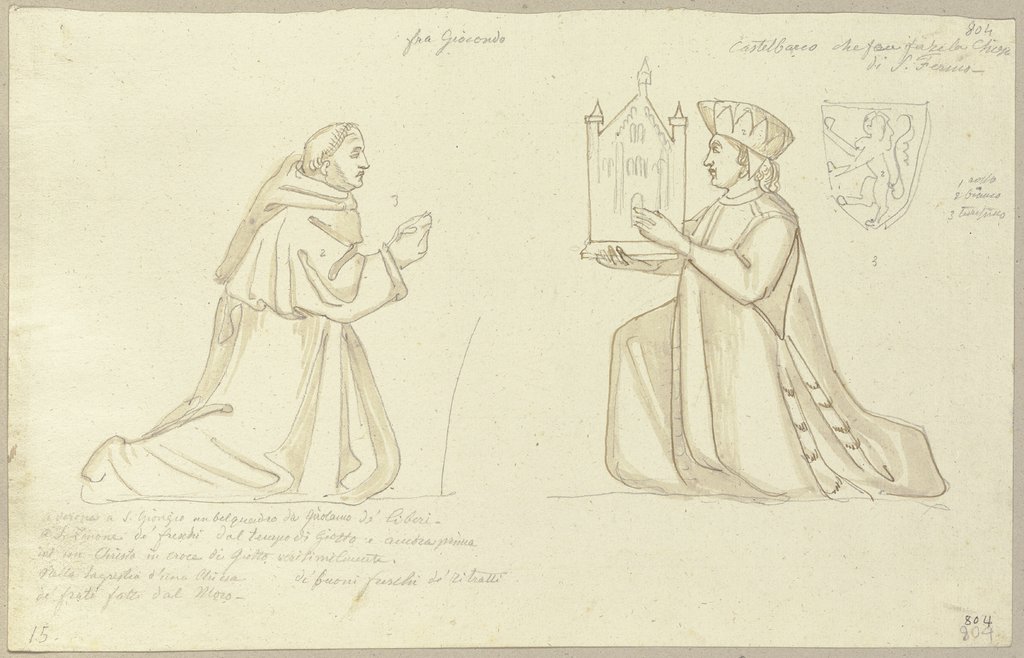 fra Giocondo
804
Castelbarco che fece fare la Chiesa
di S. Fermo –
1 rosso
2 bianco
3 turchino
3
2
2
2
3
a verona a S. Giorgio un bel quadro da Girolamo de' Liberi –
a S. de' freschi dal tempo di Giotto e ancora prima
un Christo in croce di Giotto verisimilmente.
Nella Sagrestia d'una Chiesa de buoni freschi de' ritratti
de frati fatti dal Moro –
15.
804
804